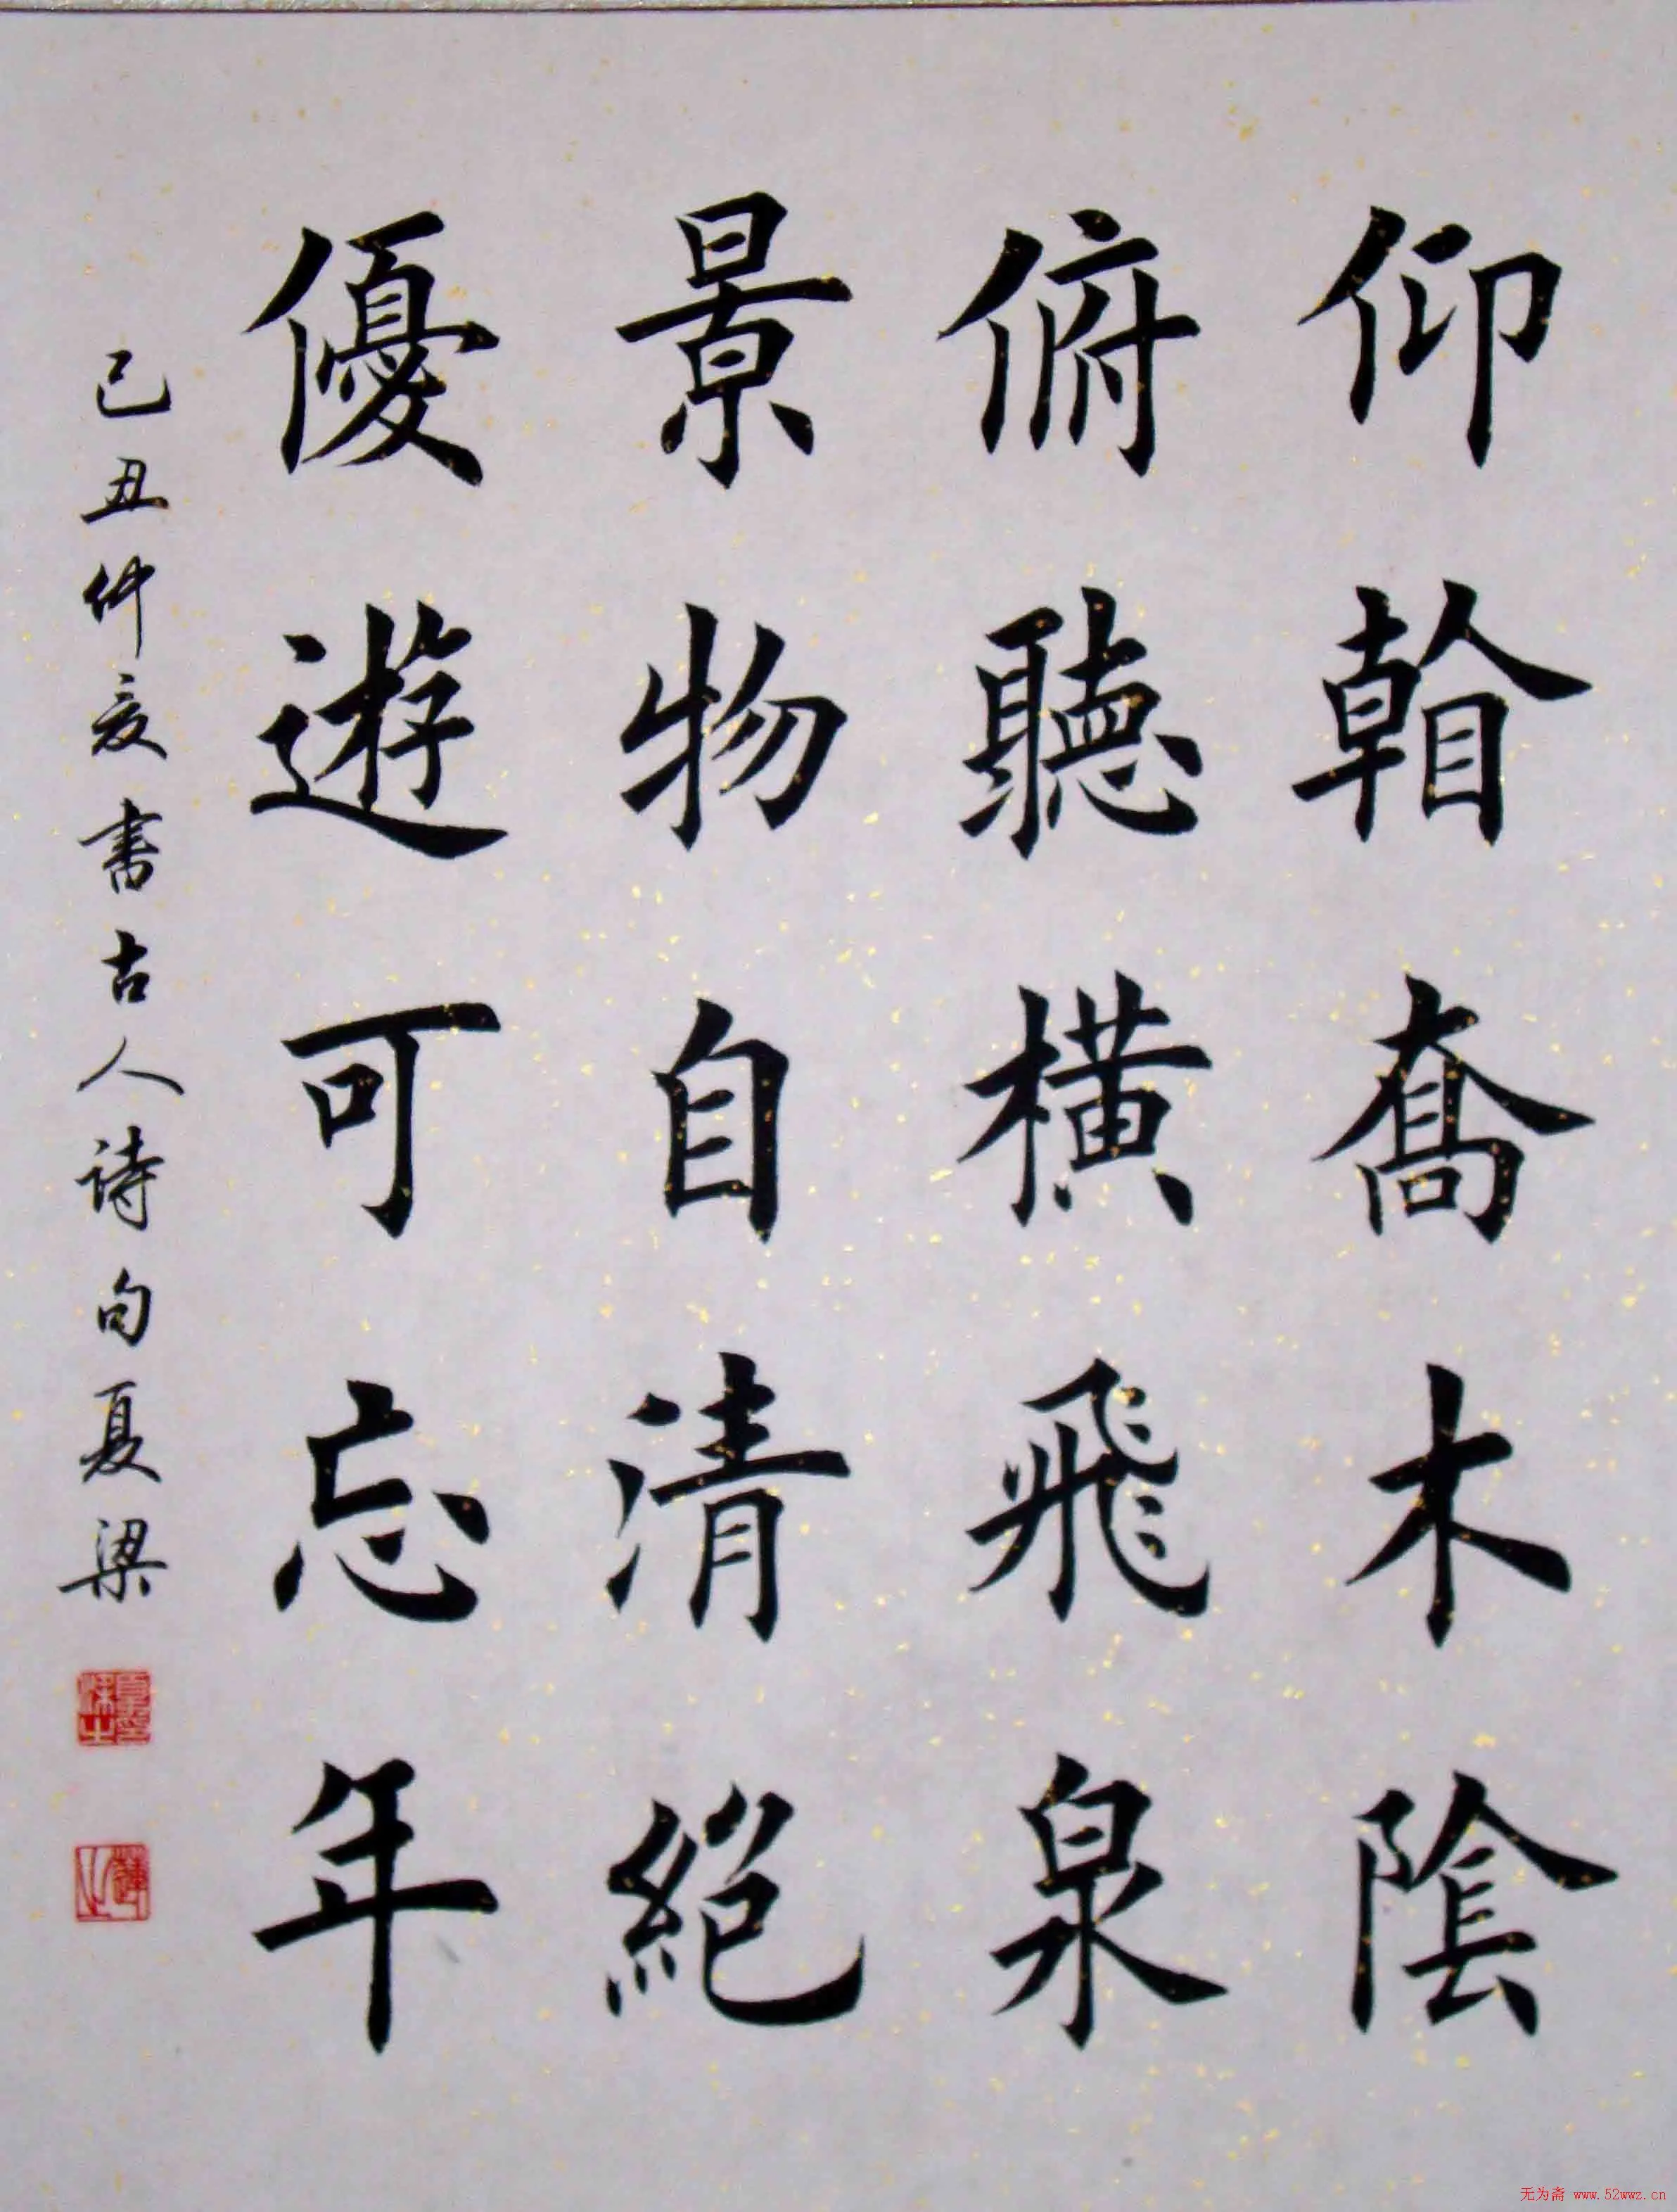 仰喬木陰
俯聽橫飛泉
景物自清絕
優遊可忘年
己丑仲夏書古人诗句夏梁
无为斋 www.52wwz.cn